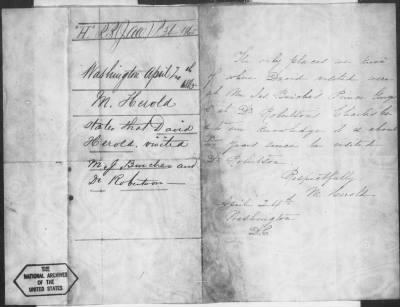 "H" R.B. (JAO) P 38 1865
Washington April 24th
1865
M. Herold
states that David
Herold visited
M. J. Butcher and
Dr Robertson
The only places we know
of where David visited were
at Mr Jas Butcher Prince Georg
at Dr Robertson Charles Co
to our knowledge it is about
years since he visited
Dr Robertson
Respectfully
M. Herold
April 24th
Washington
D.C
THE
NATIONAL ARCHIVES
OF THE
UNITED STATES